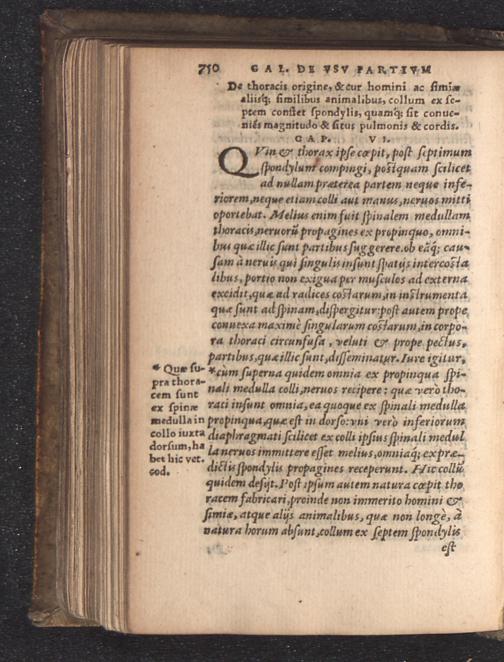 750 GAL. DE VSV PARTIVM
De thoracis origine, & cur homini ac simiæ
aliisq; similibus animalibus, collum ex se-
ptem constet spondylis, quamq; sit conue-
niẽs magnitudo & situs pulmonis & cordis.
CAP. VI.
QVin & thorax ipse cœpit, post septimum
spondylum compingi, postquam scilicet
ad nullam præterea partem neque infe-
riorem, neque etiam colli aut manus, neruos mitti
oportebat. Melius enim fuit spinalem medullam
thoracis, neruorũ propagines ex propinquo, omni-
bus quæ illic sunt partibus suggerere. ob eãq; cau-
sam à neruis qui singulis insunt spatijs intercosta
libus, portio non exigua per musculos ad externa
excidit, quæ ad radices costarum, in instrumenta
quæ sunt ad spinam, dispergitur: post autem prope
conuexa maximè singularum costarum, in corpo-
ra thoraci circunfusa, veluti & prope pectus,
partibus, quæ illic sunt, disseminatur. Iure igitur,
*cùm superna quidem omnia ex propinqua spi-
nali medulla colli, neruos recipere: quæ verò tho-
raci insunt omnia, ea quoque ex spinali medulla
propinqua, quæ est in dorso: vni verò inferiorum
diaphragmati scilicet ex colli ipsius spinali medul
la neruos immittere esset melius, omniaq; ex præ-
dictis spondylis propagines receperunt. Hic collũ
quidem desijt. Post ipsum autem natura cœpit tho
racem fabricari, proinde non immerito homini &
simiæ, atque alijs animalibus, quæ non longè, à
natura horum absunt, collum ex septem spondylis
est
* Quæ su-
pra thora-
cem sunt
ex spinæ
medulla in
collo iuxta
dorsum, ha
bet hic vet.
cod.